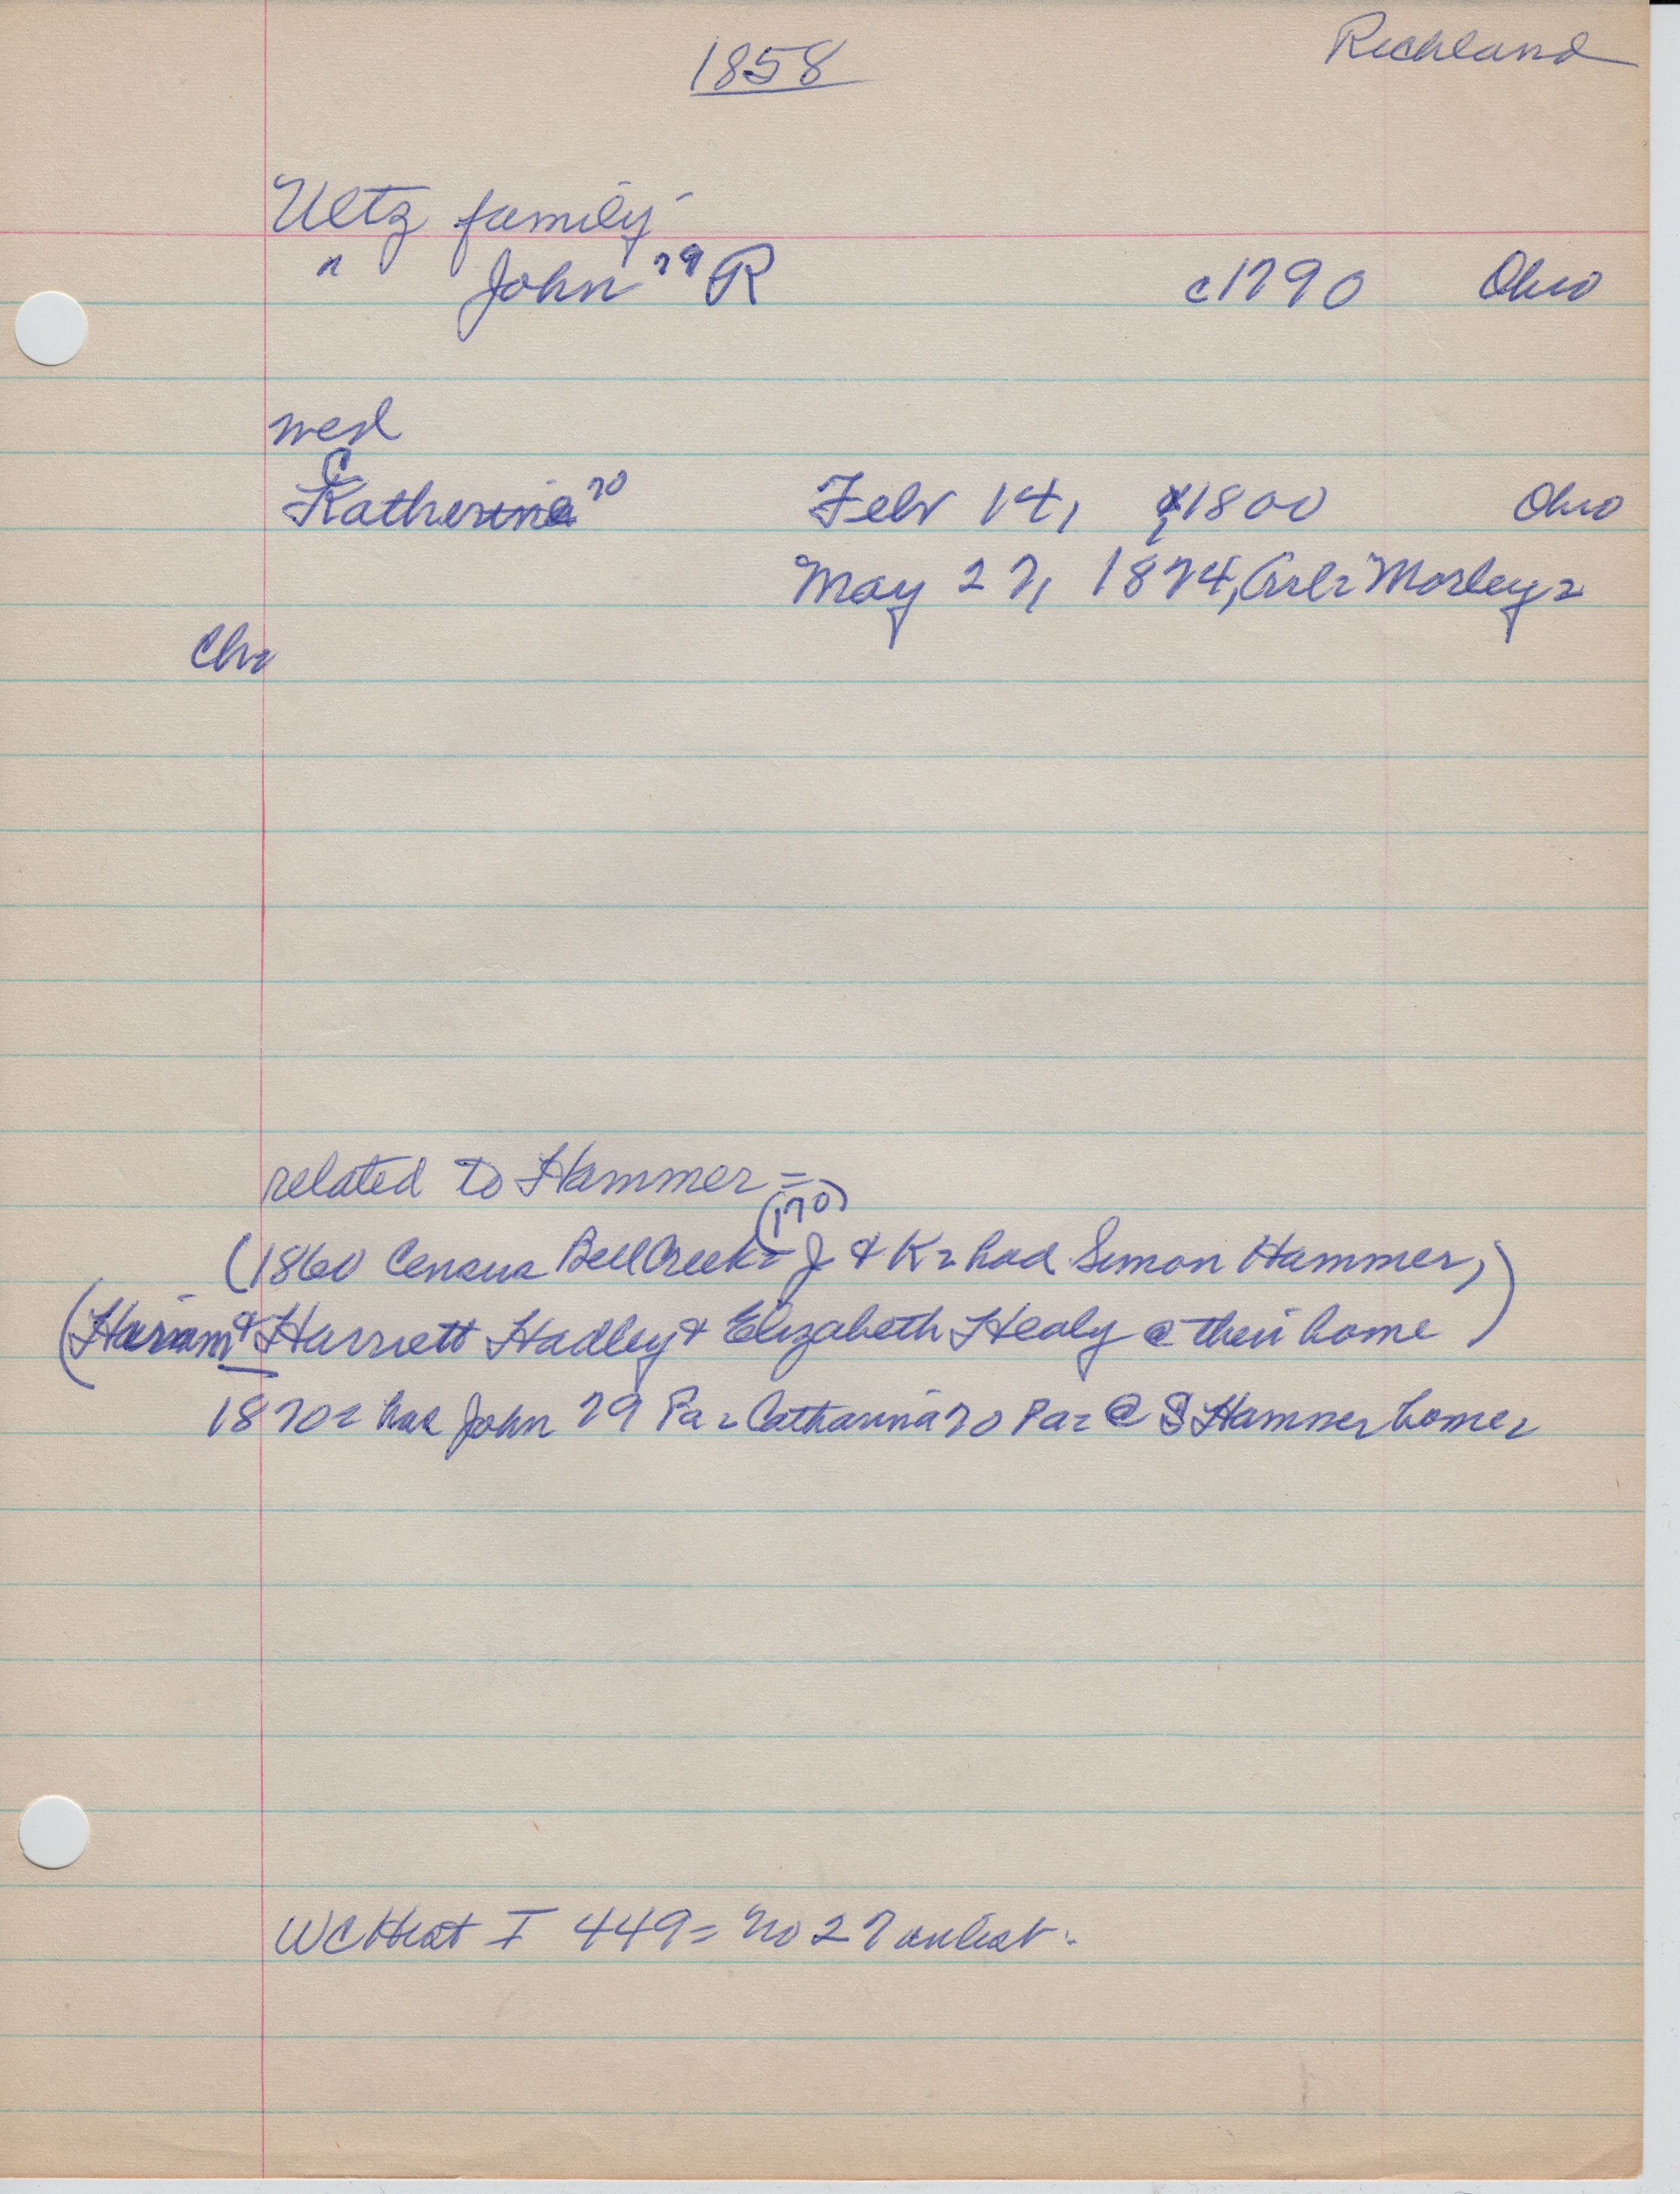 1858
Richland
Ultz family
" John 79 R c1790 Ohio
wed
C
Katherine 70 Feb 14, 1800 Ohio
May 27, 1874, Morley=
Ch=
related to Hammer =
(170)
(1860 Census Bell Creek= J & K= had Simon Hammer,)
(Hiriam & Harriett Hadley & Elizabeth Healy @ their home)
1870= has John 79 Pa= Catharina 70 Pa= @ S Hammer home=
WC Hist I 449= No 27 on list.